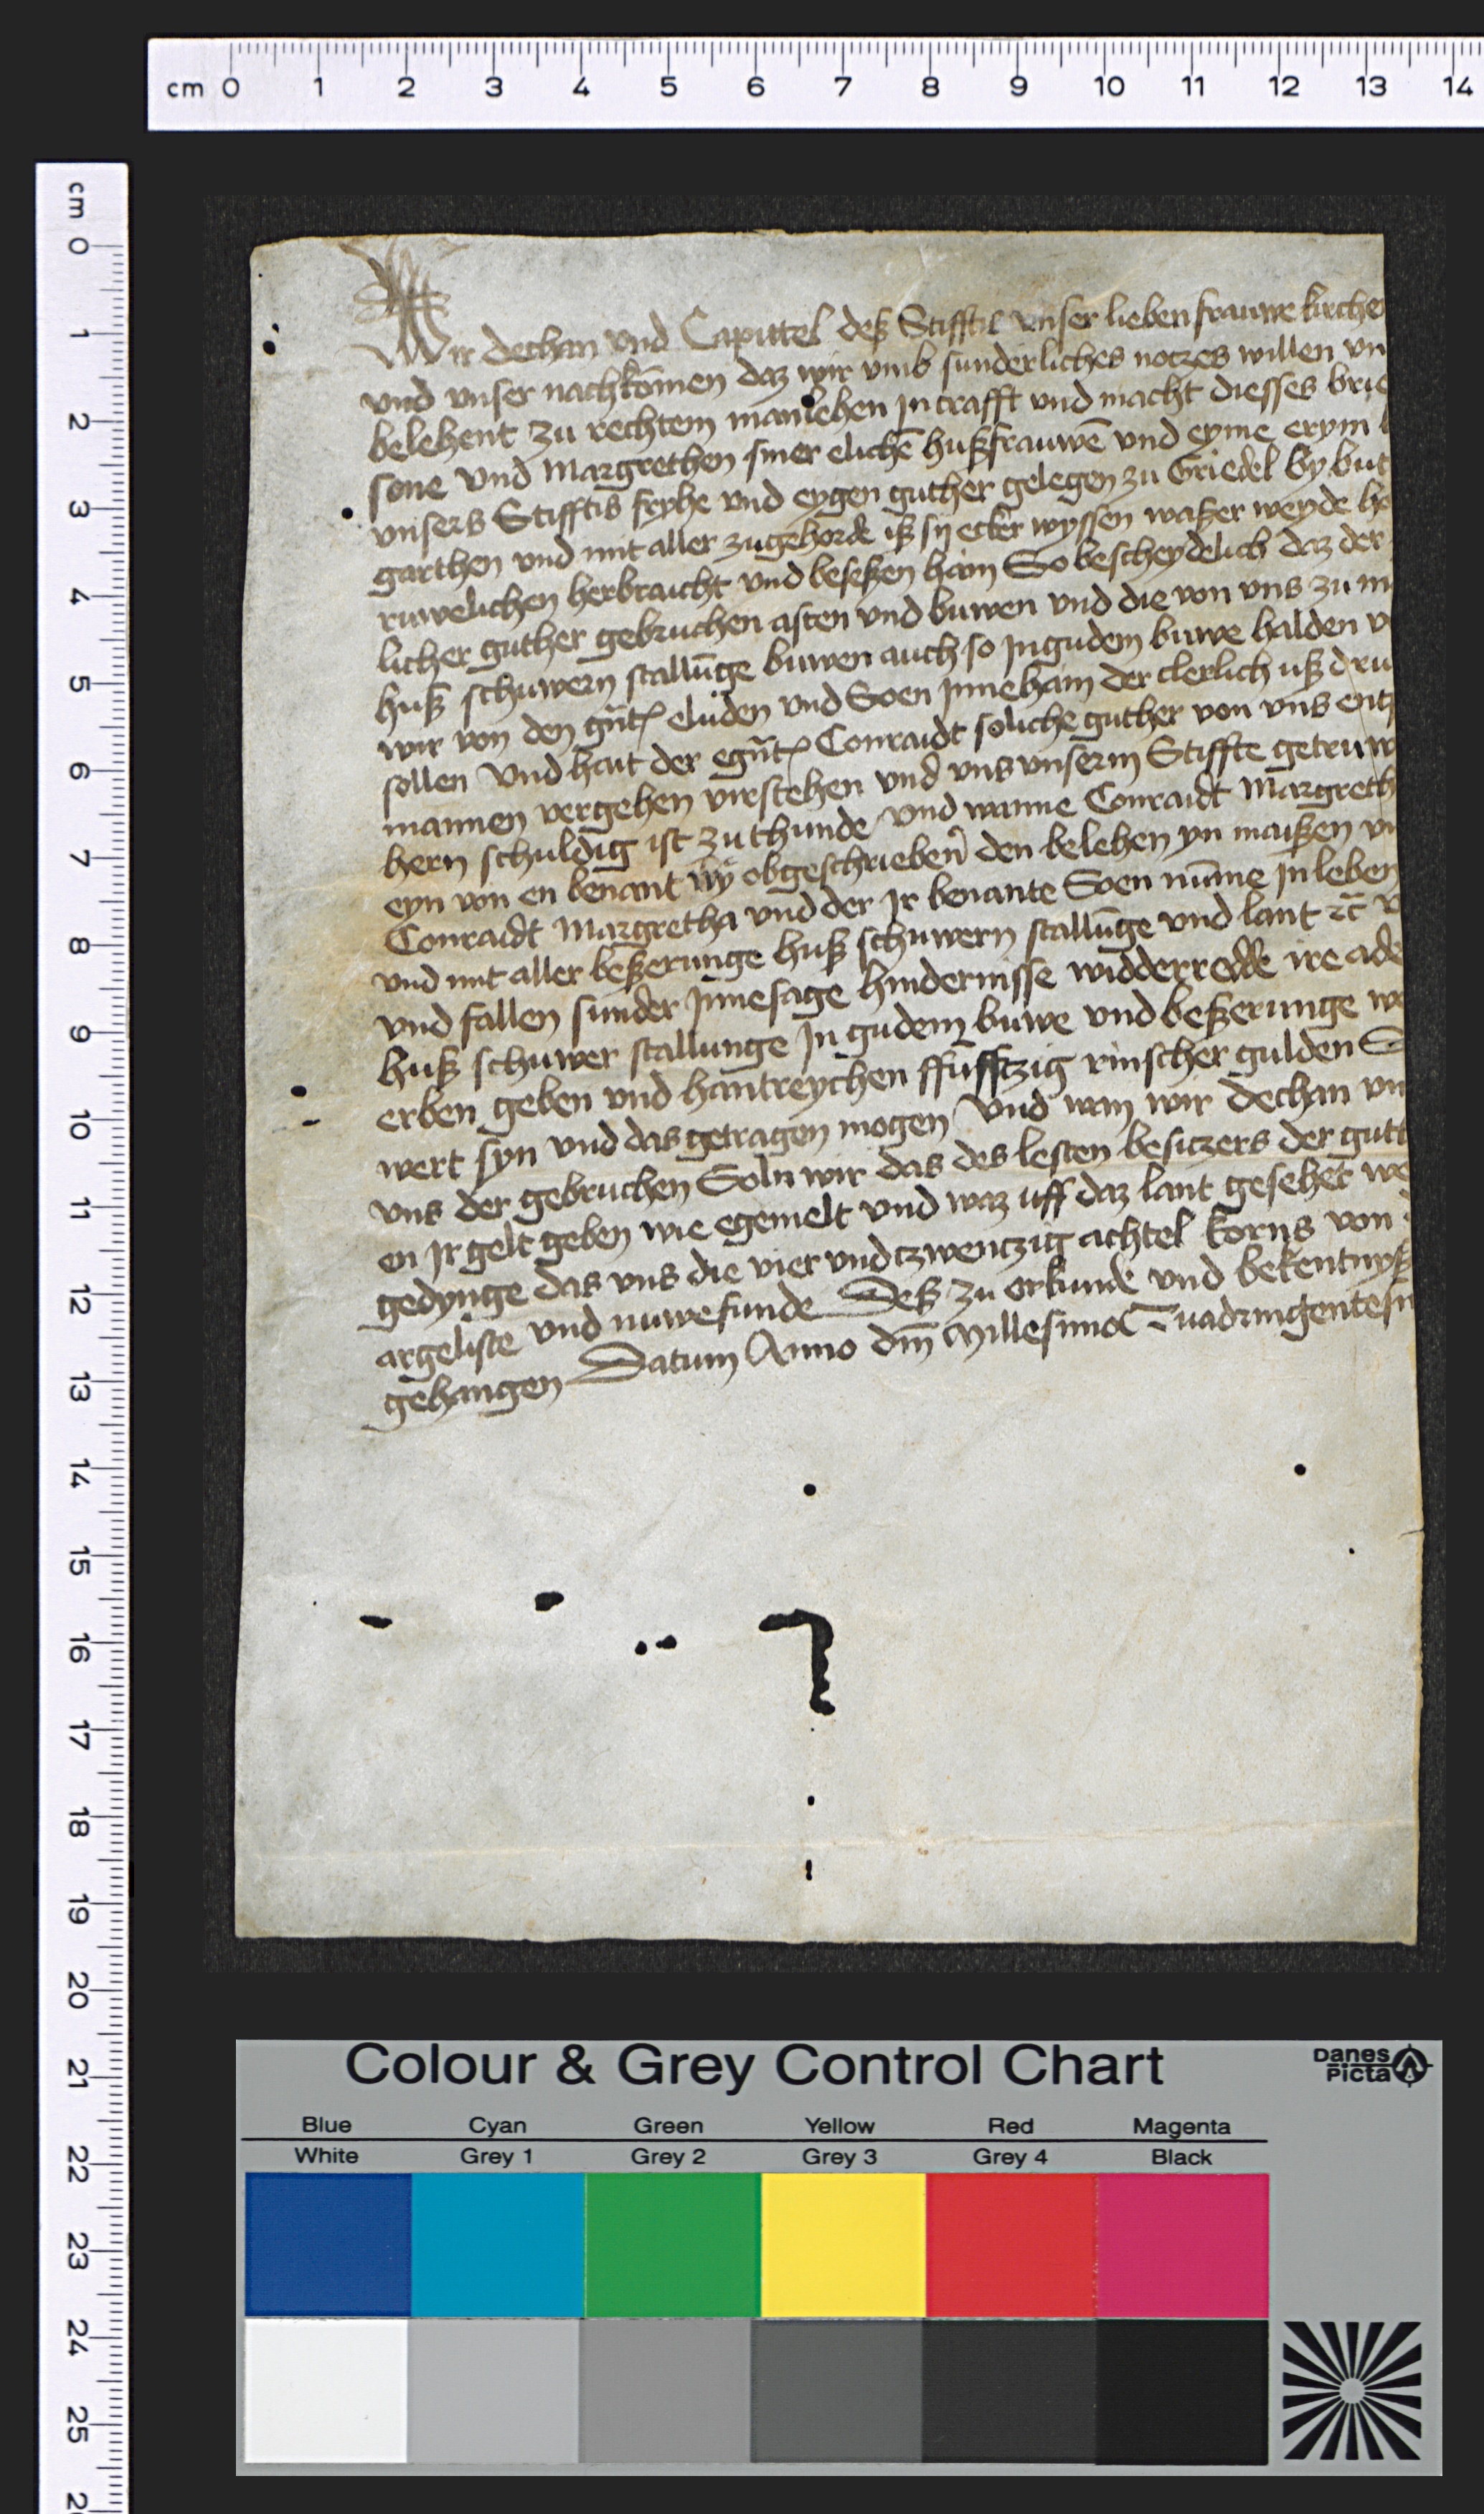 cm 0 1 2 3 4 5 6 7 8 9 10 11 12 13 14
cm 0 1 2 3 4 5 6 7 8 9 10 11 12 13 14 15 16 17 18 19 20 21 22 23 24 25
Wir dechan vnd Capittel deß Stifftis vnser lieben frauwe kirchen
vnd vnser nachkōmen daz wir vmb sunderliches notzes willen vn
belehent zu rechtem manlehen jn crafft vnd macht diesses brie
sone vnd Margrethen siner elichē hußfrauwē vnd eyme erym
vnsers Stifftis fryhe vnd eygen guther gelegen zu Griedel by but
garthen vnd mit aller zugehorde iß sy ecker wyssen waßer weyde
ruwelichen herbraicht vnd beseßen hain So bescheydelich daz der
licher guther gebruchen asten vnd buwen vnd die von vns zu m
huß schuwern stallūge buwen auch so jn gudem buwe halden
wir von den gn̄t eluden vnd Soen jnne hain der clerlich uß dru
sollen Vnd hait der egn̄t Conraidt soliche guther von vns ent
mannen vergehen virstehen vnd vns vnserm Stiffte getruw
hern schuldig ist zu thunde Vnd wanne Conraidt Margreth
eyn von en benant wÿ obgeschrieben den belehen yn maißen vn
Conraidt Margretha vnd der Jr benante Soen nūme jn leben
vnd mit aller beßerunge huß schuwern stallūge vnd lant ꝛc̄
vnd fallen sunder jnnesage hindernisse widderredde ire ade
huß schuwer stallunge Jn gudem buwe vnd beßerunge we
erben geben vnd hantreychen ffufftzig rinscher gulden S
wert syn vnd das getragen mogen Vnd wan wir dechan vn
vns der gebruchen Soln wir das des lesten besitzers der gutt
en jr gelt geben wie egemelt vnd waz uff daz lant gesehet we
gedynge das vns die vier vnd tzwentzig achtel korns von
argeliste vnd nuwe funde Deß zu orkunde vnd bekentnyß
gehangen Datum Anno dm̄ Millesimo Quadringentesi
Colour & Grey Control Chart
Danes Picta
Blue Cyan Green Yellow Red Magenta
White Grey 1 Grey 2 Grey 3 Grey 4 Black